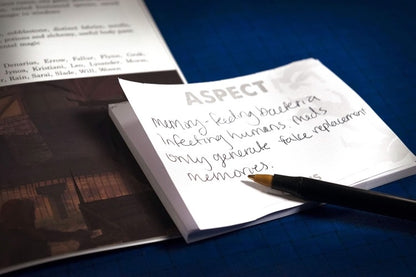 , cobblestone, distinct fabric, motifs,
potions and alchemy, useful body paint
ental magic
Denarius, Errow, Falfur, Flynn, Groh,
Jynoa, Kristiani, Leo, Lysander, Morat,
Rain, Sarai, Slade, Will,
ASPECT
Memory-feeding bacteria
infecting humans. Meds
only generate fake replacement
memories.